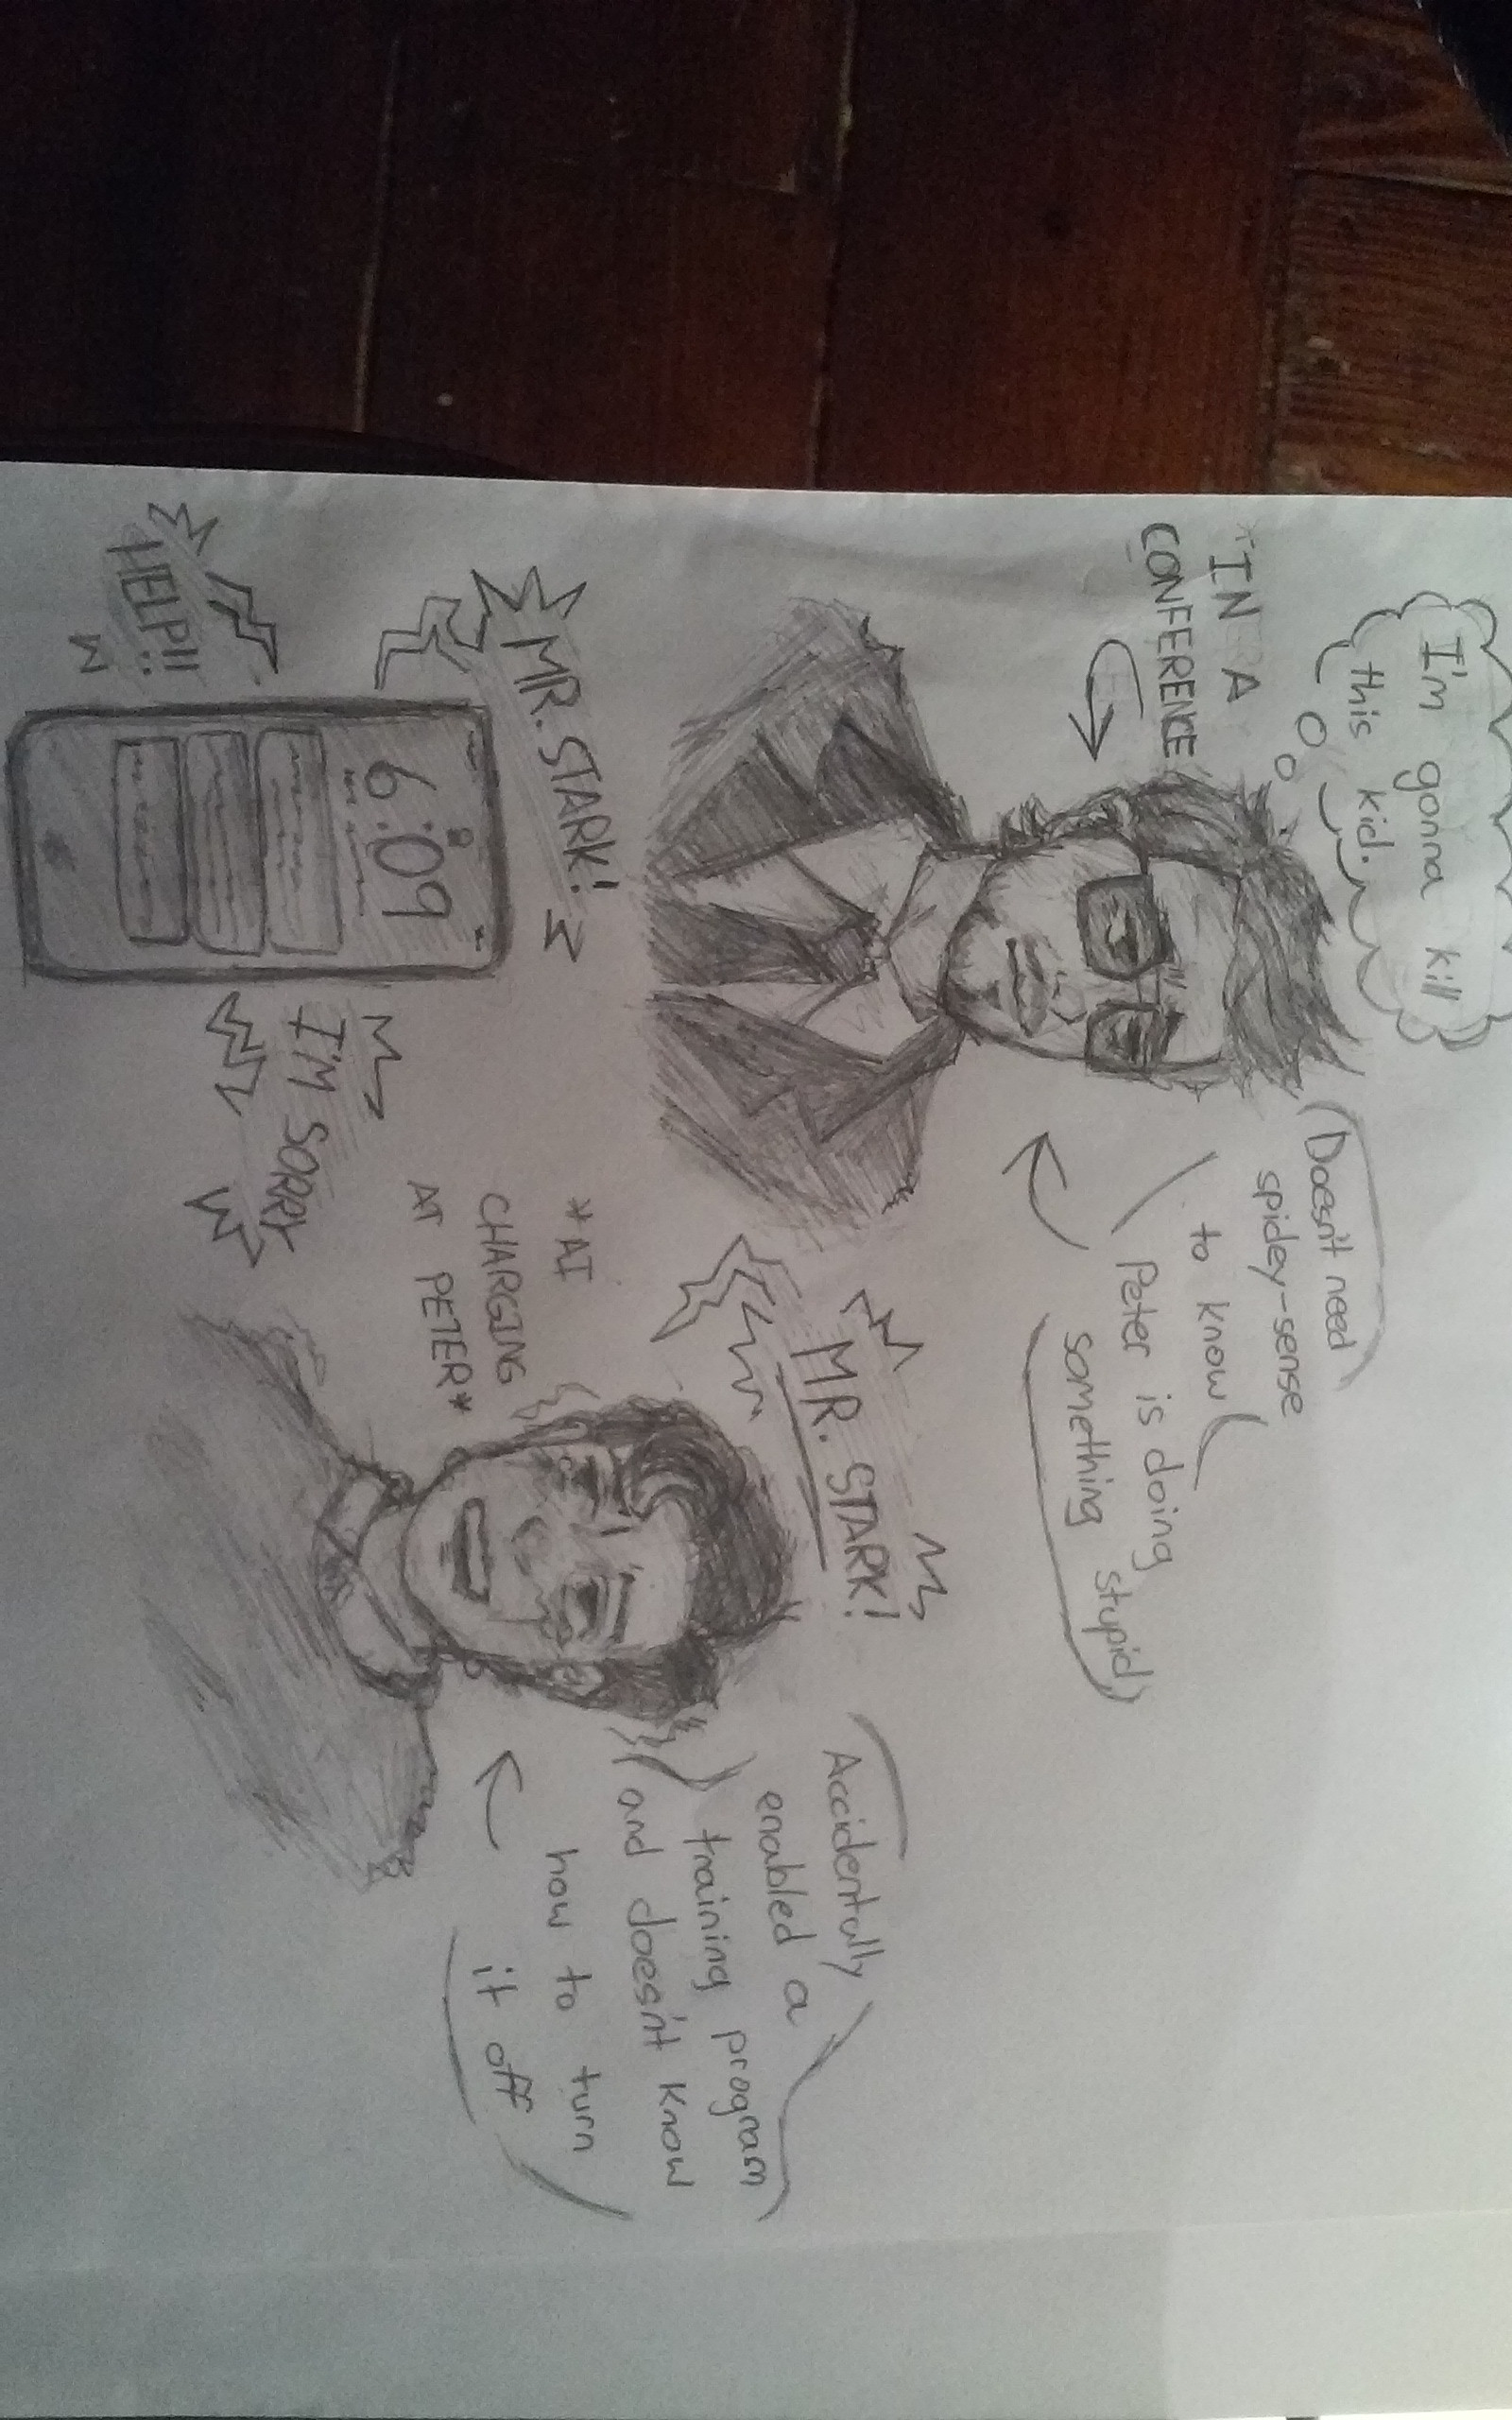 I'm gonna kill
this kid.
*IN A
CONFERENCE
(Doesn't need
spidey-sense
to know
Peter is doing
something stupid)
MR. STARK!
HELP!!
6:09
I'M SORRY
MR. STARK!
*AI
CHARGING
AT PETER*
(Accidentally
enabled a
training program
and doesn't know
how to turn
it off)